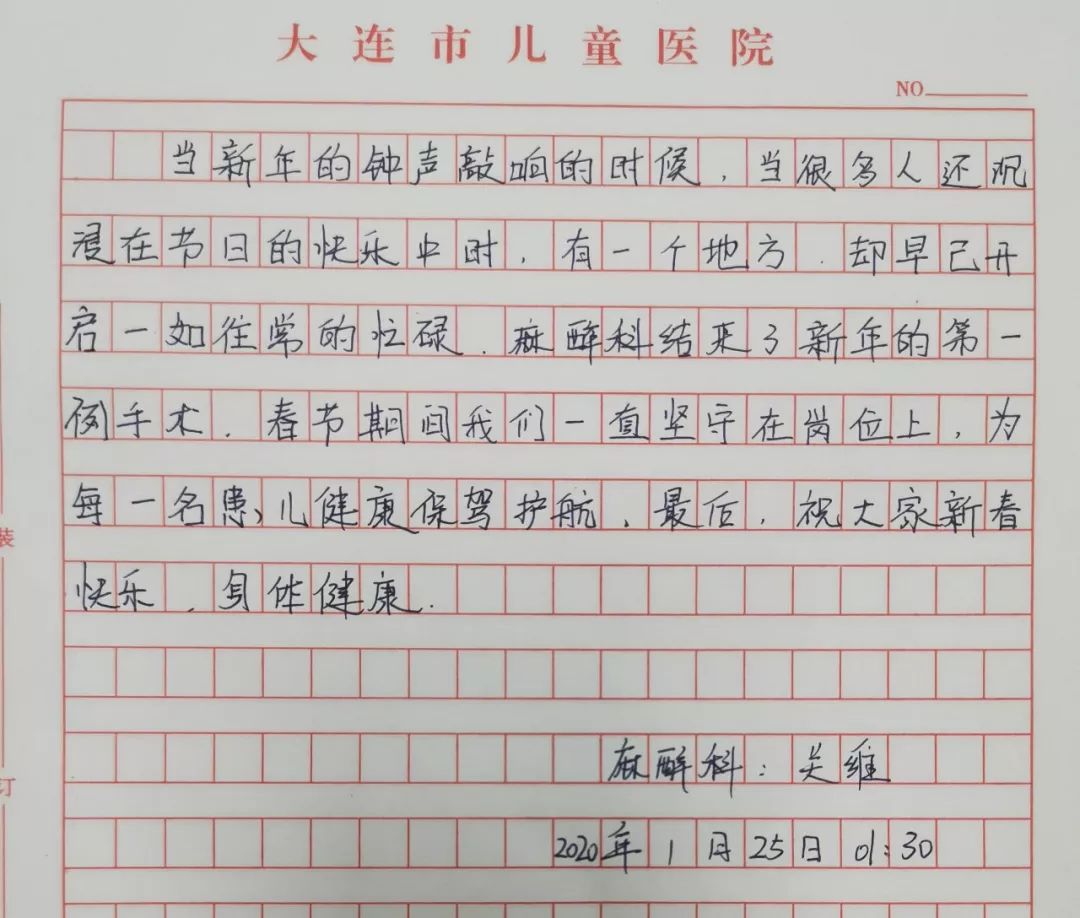 大连市儿童医院
NO
当新年的钟声敲响的时候,当很多人还沉
浸在节日的快乐中时,有一个地方.却早已开
启一如往常的忙碌.麻醉科结来了新年的第一
例手术.春节期间我们一直坚守在岗位上,为
每一名患儿健康保驾护航.最后,祝大家新春
快乐,身体健康.
麻醉科:关维
2020年1月25日 01:30
装
订